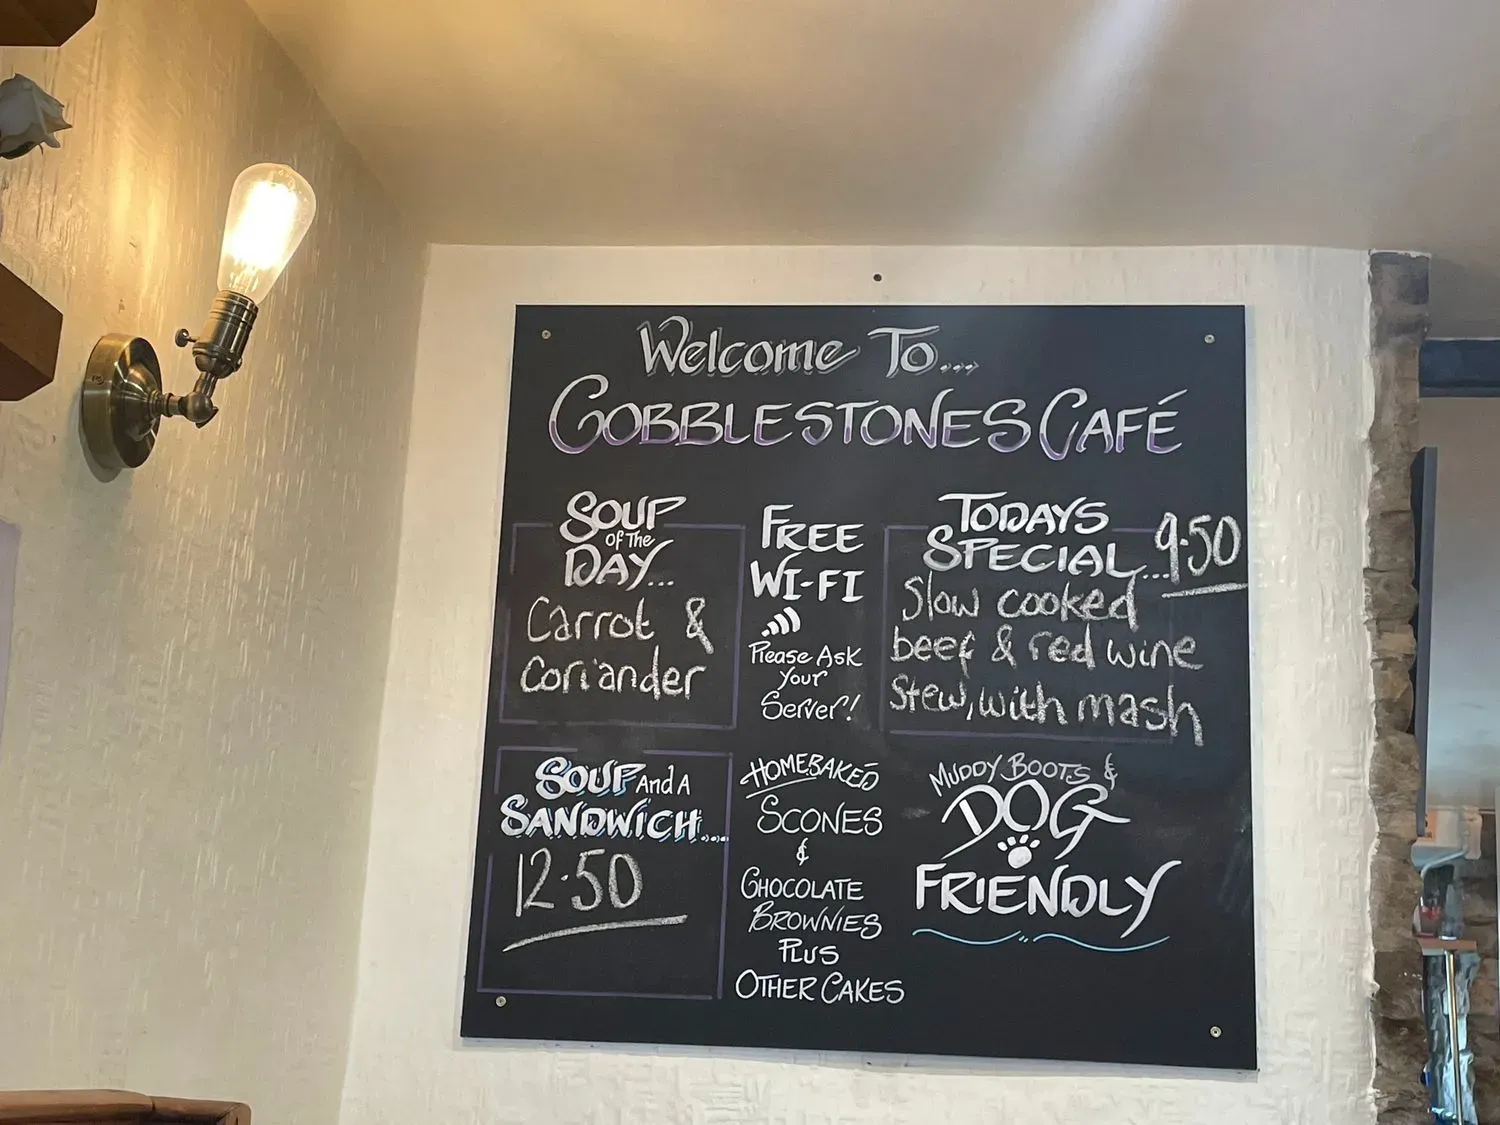 Welcome To...
COBBLESTONES CAFÉ
SOUP
OF THE
DAY...
Carrot &
Coriander
FREE
WI-FI
Please Ask
Your
Server!
TODAYS
SPECIAL...9.50
Slow cooked
beef & red wine
Stew, with mash
SOUP And A
SANDWICH....
12.50
HOMEBAKED
SCONES
&
CHOCOLATE
BROWNIES
PLUS
OTHER CAKES
MUDDY BOOTS &
DOG
FRIENDLY